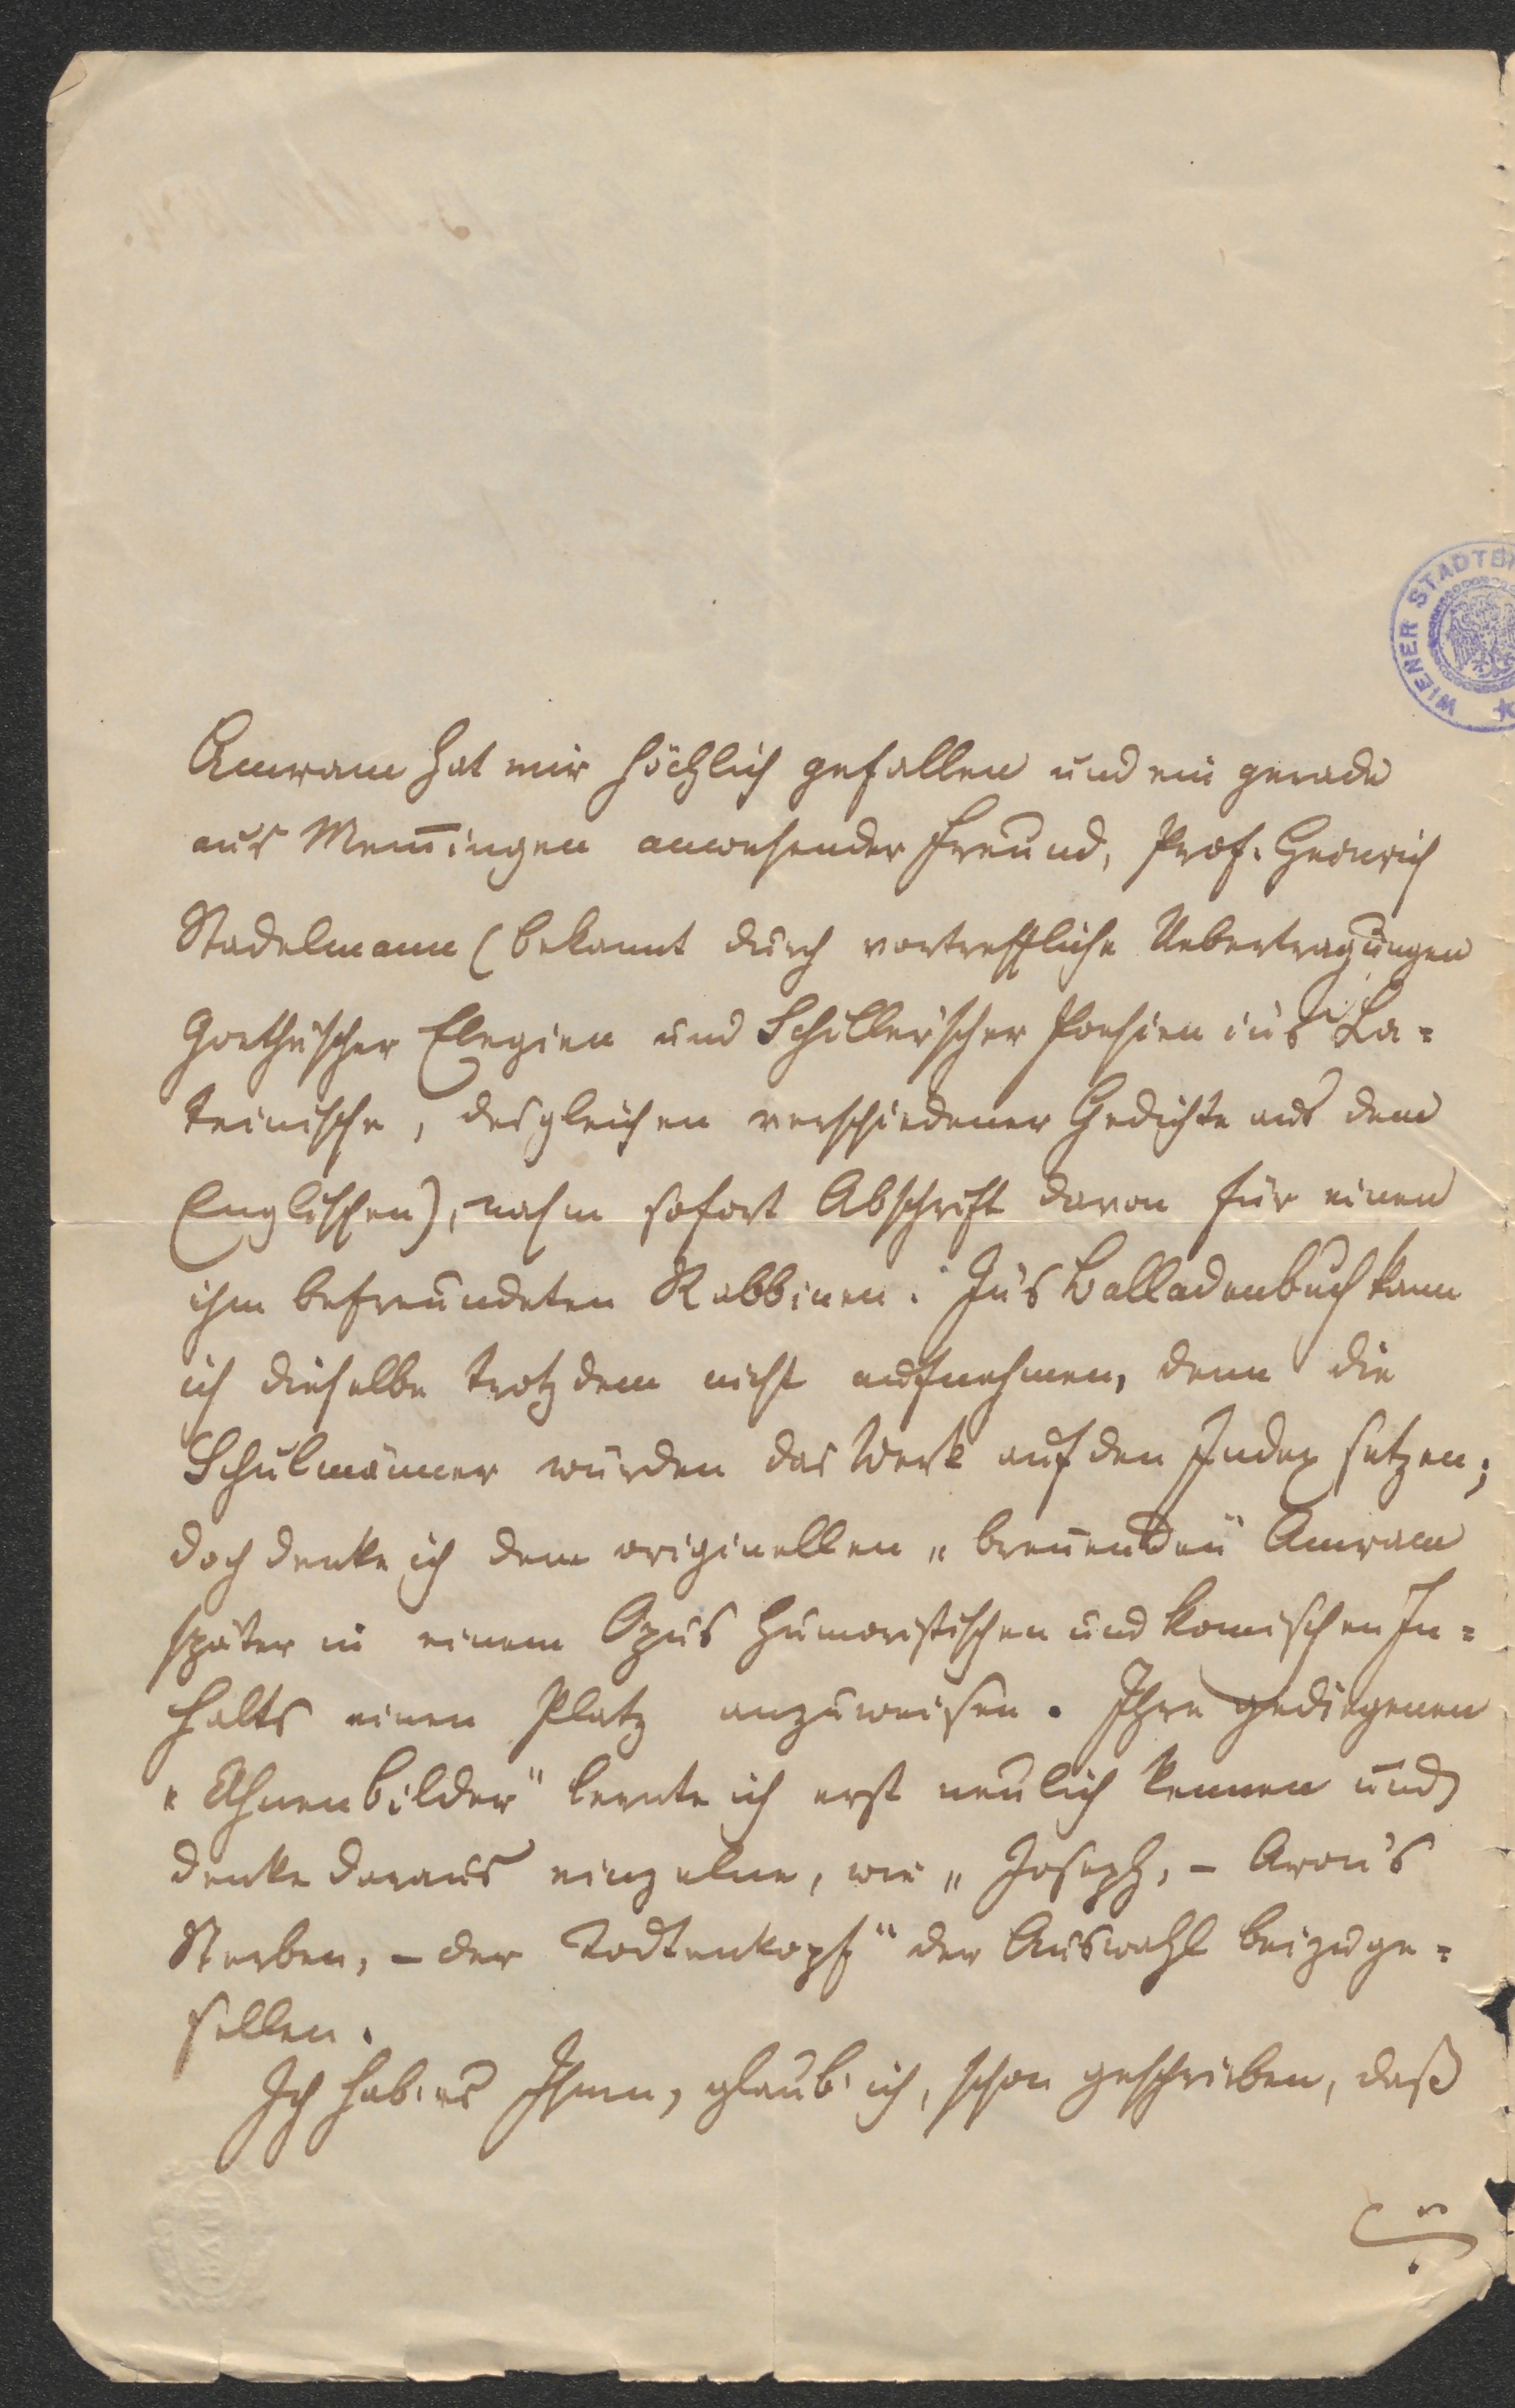 WIENER STADTBI
Amram hat mir höchlich gefallen und ein gerade
aus Mem̅ingen anwesender Freund, Prof. Heinrich
Stadelmann (bekannt durch vortreffliche Uebertragungen
Goethe'scher Elegien und Schiller'scher Poesien ins La=
teinische, desgleichen verschiedener Gedichte aus dem
Englischen), nahm sofort Abschrift davon für einen
ihm befreundeten Rabbinen. Ins Balladenbuch kann
ich dieselbe trotzdem nicht aufnehmen, denn die
Schulmänner würden das Werk auf den Index setzen;
doch denke ich dem originellen „bren̅enden" Amram
später in einem Opus humoristischen und komischen In=
halts einen Platz anzuweisen. Ihre gediegenen
„Ahnenbilder" lernte ich erst neulich kennen und
denke daraus einzelne, wie „Joseph, – Aron's
Sterben, – der Todtenkopf" der Auswahl beizuge=
sellen.
Ich hab' es Ihnen, glaub' ich, schon geschrieben, daß